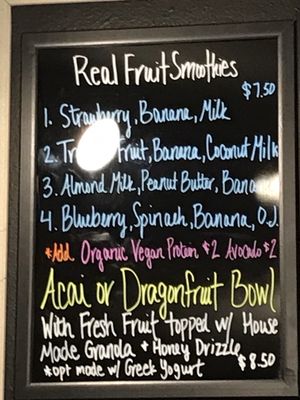 Real Fruit Smoothies
$7.50
1. Strawberry, Banana, Milk
2. Fruit, Banana, Coconut Milk
3. Almond Milk, Peanut Butter, Banana
4. Blueberry, Spinach, Banana, O.J.
*Add Organic Vegan Protein $2 Avocado $2
Acai or Dragonfruit Bowl
With Fresh Fruit topped w/ House
Made Granola + Honey Drizzle
*opt made w/ Greek Yogurt $8.50